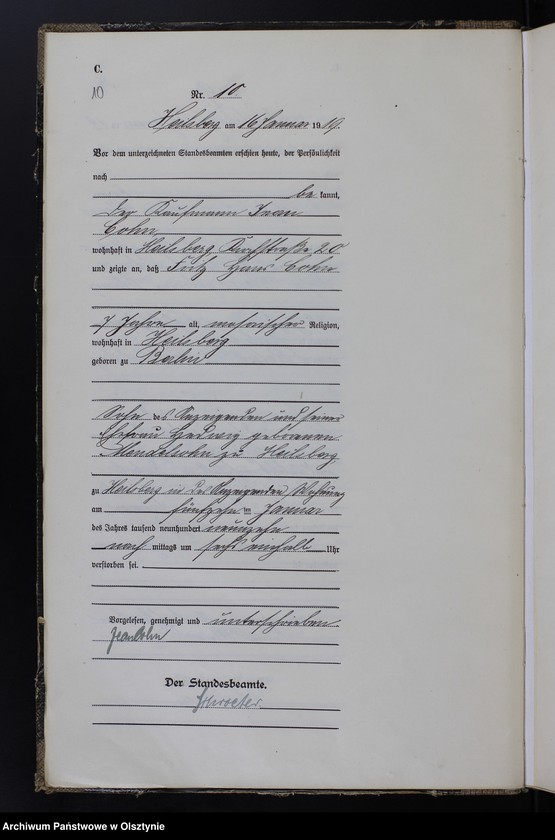 C.
10
Nr. 10
Heilsberg am 16 Januar 1919.
Vor dem unterzeichneten Standesbeamten erschien heute, der Persönlichkeit
nach
be kannt,
der Kaufmann Iwan
Cohn
wohnhaft in Heilsberg, Kirchstraße 20
und zeigte an, daß Fritz Hans Cohn
7 Jahre alt, mosaischer Religion,
wohnhaft in Heilsberg
geboren zu Berlin
Sohn des Anzeigenden und seiner
Ehefrau Hedwig geborenen
Mendelsohn zu Heilsberg
zu Heilsberg in des Anzeigenden Wohnung
am fünfzehn ten Januar
des Jahres tausend neunhundert neunzehn
nach mittags um sechs einhalb Uhr
verstorben sei.
Vorgelesen, genehmigt und unterschrieben.
Cohn
Der Standesbeamte.
Schroeter.
Archiwum Państwowe w Olsztynie